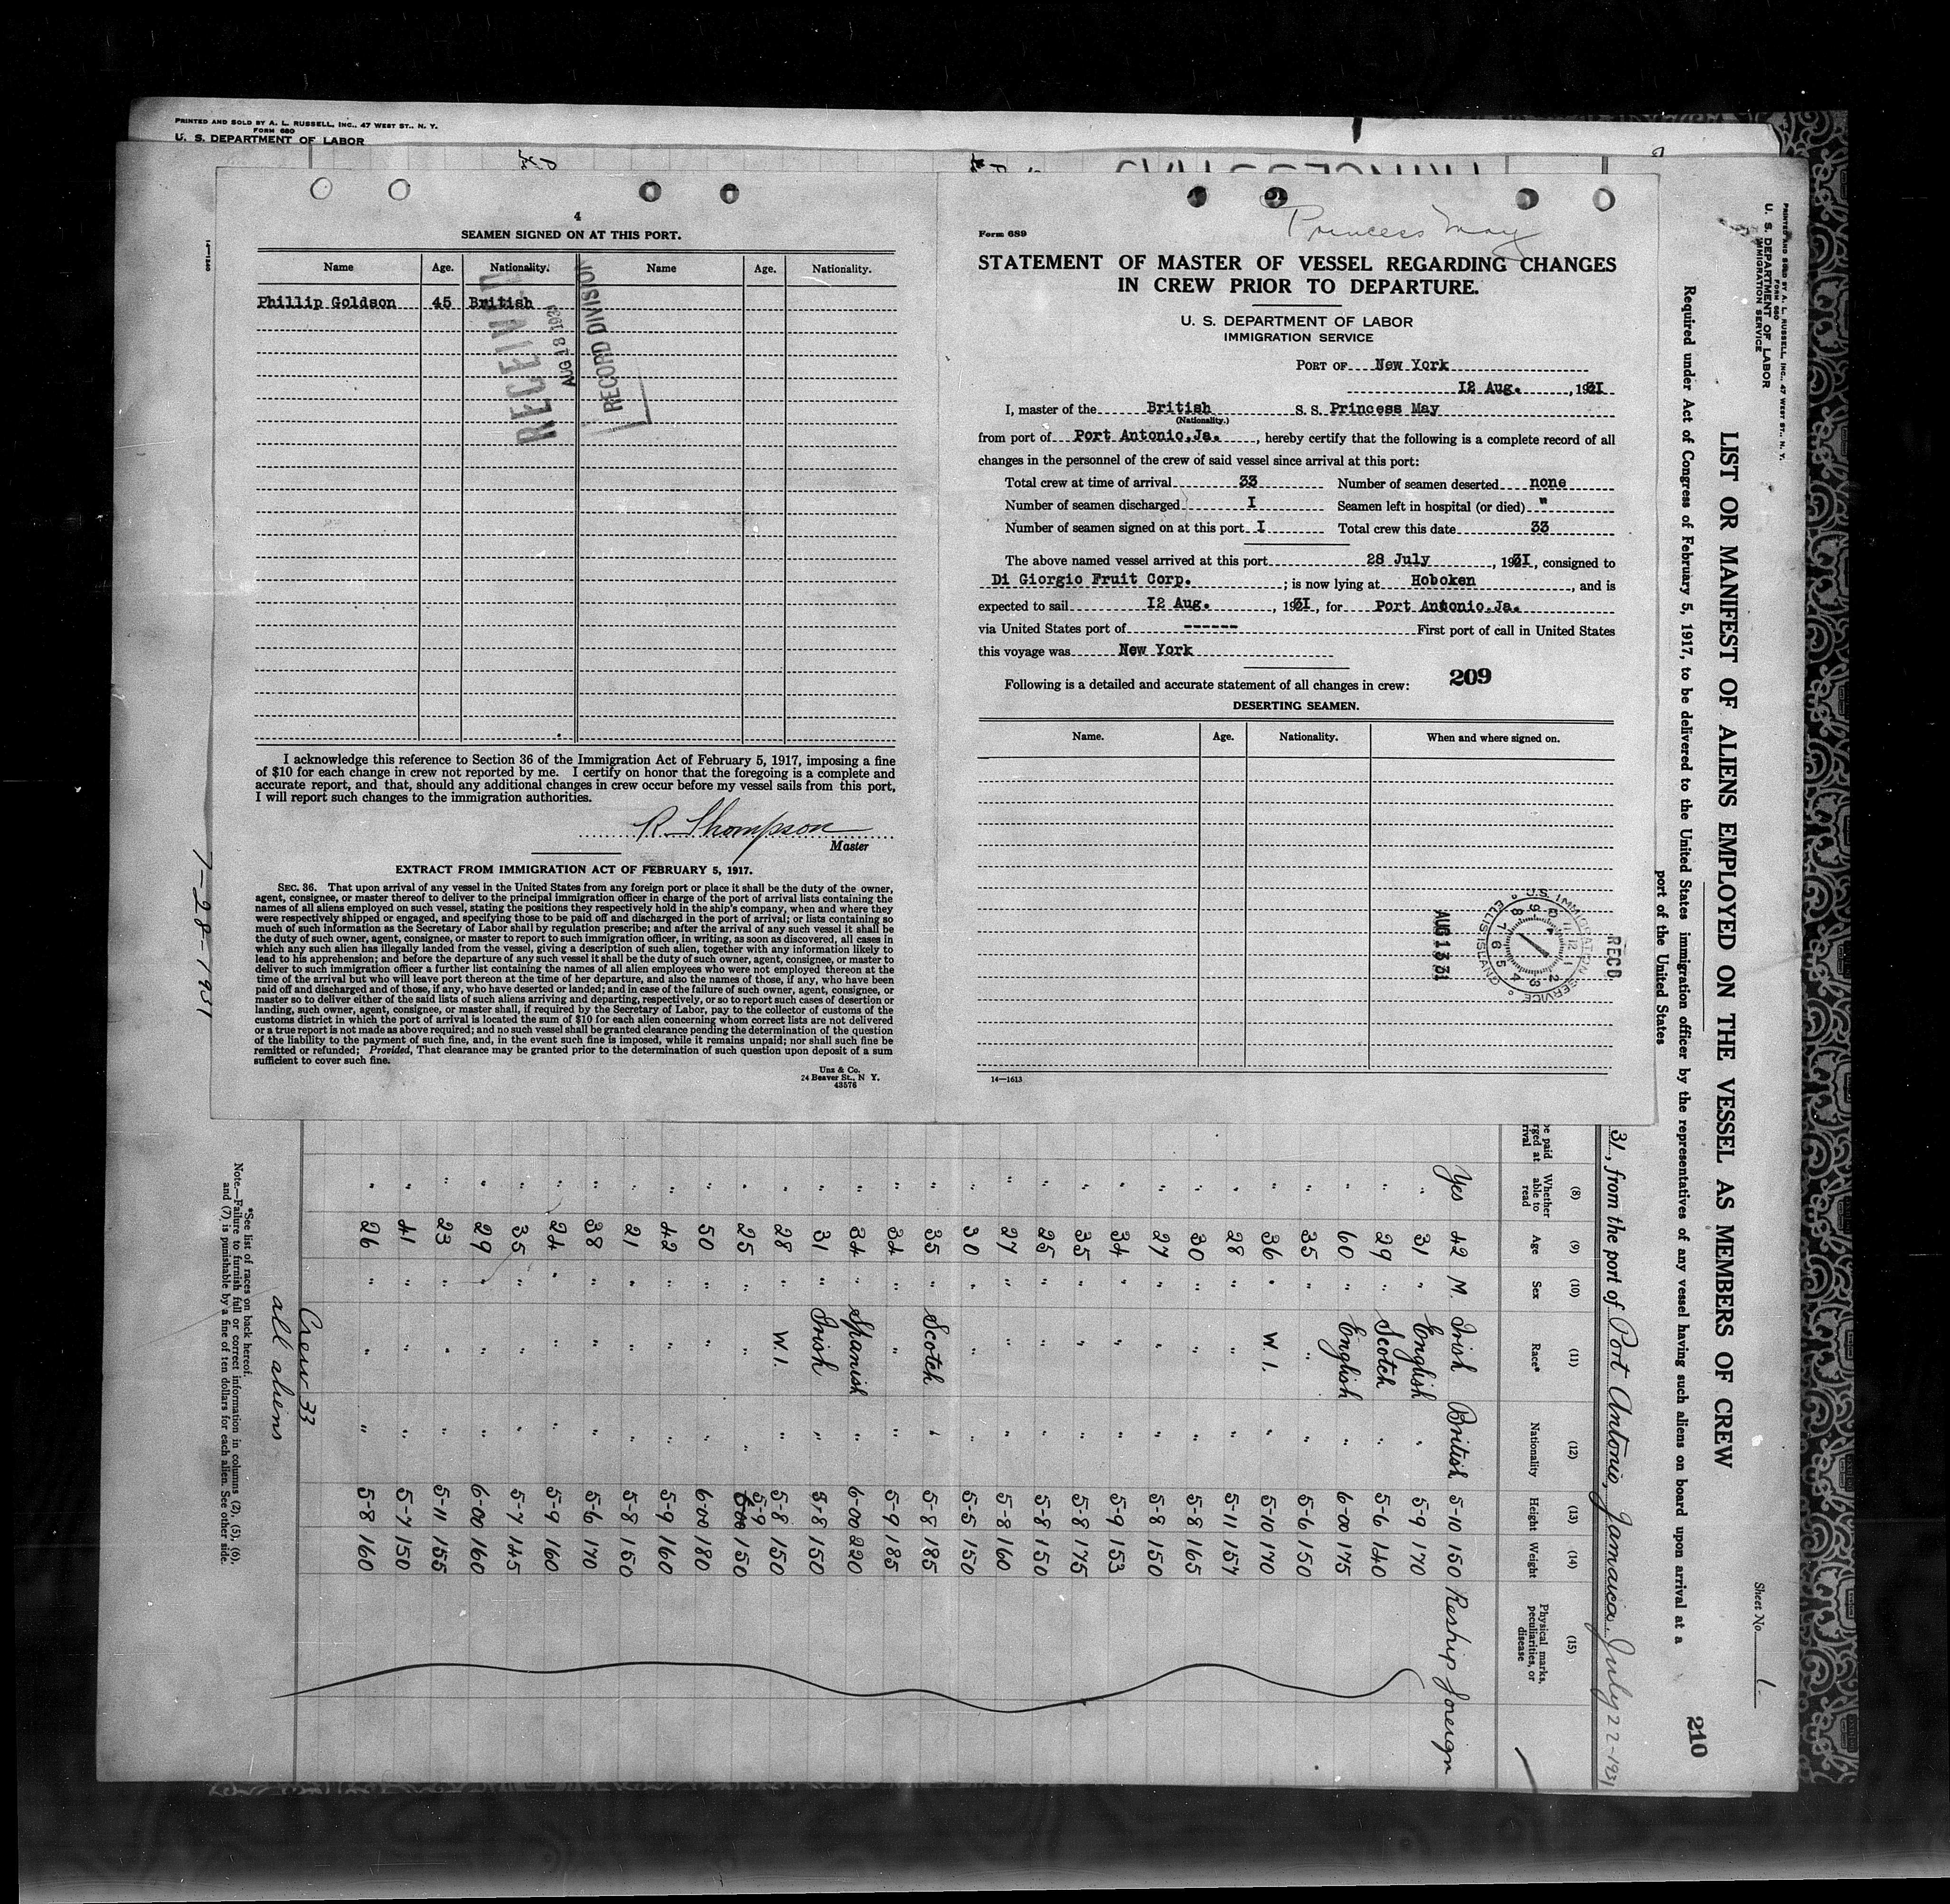 PRINTED AND SOLD BY A. L. RUSSELL, INC., 47 WEST ST., N. Y.
FORM 680
U. S. DEPARTMENT OF LABOR
4
SEAMEN SIGNED ON AT THIS PORT.
Name Age. Nationality. Name Age. Nationality.
Phillip Goldson 45 British
RECEIVED
AUG 18 193
RECORD DIVISION
I acknowledge this reference to Section 36 of the Immigration Act of February 5, 1917, imposing a fine
of $10 for each change in crew not reported by me. I certify on honor that the foregoing is a complete and
accurate report, and that, should any additional changes in crew occur before my vessel sails from this port,
I will report such changes to the immigration authorities.
R. Thompson
Master
EXTRACT FROM IMMIGRATION ACT OF FEBRUARY 5, 1917.
SEC. 36. That upon arrival of any vessel in the United States from any foreign port or place it shall be the duty of the owner,
agent, consignee, or master thereof to deliver to the principal immigration officer in charge of the port of arrival lists containing the
names of all aliens employed on such vessel, stating the positions they respectively hold in the ship's company, when and where they
were respectively shipped or engaged, and specifying those to be paid off and discharged in the port of arrival; or lists containing so
much of such information as the Secretary of Labor shall by regulation prescribe; and after the arrival of any such vessel it shall be
the duty of such owner, agent, consignee, or master to report to such immigration officer, in writing, as soon as discovered, all cases in
which any such alien has illegally landed from the vessel, giving a description of such alien, together with any information likely to
lead to his apprehension; and before the departure of any such vessel it shall be the duty of such owner, agent, consignee, or master to
deliver to such immigration officer a further list containing the names of all alien employees who were not employed thereon at the
time of the arrival but who will leave port thereon at the time of her departure, and also the names of those, if any, who have been
paid off and discharged and of those, if any, who have deserted or landed; and in case of the failure of such owner, agent, consignee, or
master so to deliver either of the said lists of such aliens arriving and departing, respectively, or so to report such cases of desertion or
landing, such owner, agent, consignee, or master shall, if required by the Secretary of Labor, pay to the collector of customs of the
customs district in which the port of arrival is located the sum of $10 for each alien concerning whom correct lists are not delivered
or a true report is not made as above required; and no such vessel shall be granted clearance pending the determination of the question
of the liability to the payment of such fine, and, in the event such fine is imposed, while it remains unpaid; nor shall such fine be
remitted or refunded; Provided, That clearance may be granted prior to the determination of such question upon deposit of a sum
sufficient to cover such fine.
Unz & Co.
24 Beaver St., N. Y.
43576
7-28-1931
Form 689
Princess May
STATEMENT OF MASTER OF VESSEL REGARDING CHANGES
IN CREW PRIOR TO DEPARTURE.
U. S. DEPARTMENT OF LABOR
IMMIGRATION SERVICE
PORT OF New York
12 Aug. , 1931
I, master of the British S. S. Princess May
(Nationality.)
from port of Port Antonio.Ja. , hereby certify that the following is a complete record of all
changes in the personnel of the crew of said vessel since arrival at this port:
Total crew at time of arrival 33 Number of seamen deserted none
Number of seamen discharged I Seamen left in hospital (or died) "
Number of seamen signed on at this port I Total crew this date 33
The above named vessel arrived at this port 28 July , 1931, consigned to
Di Giorgio Fruit Corp. ; is now lying at Hoboken , and is
expected to sail 12 Aug. , 1931, for Port Antonio.Ja.
via United States port of ------ First port of call in United States
this voyage was New York
Following is a detailed and accurate statement of all changes in crew: 209
DESERTING SEAMEN.
Name. Age. Nationality. When and where signed on.
REC'D
U.S. IMMIGRATION SERVICE ELLIS ISLAND
AUG 13 31
14—1613
PRINTED AND SOLD BY A. L. RUSSELL, INC., 47 WEST ST., N. Y.
FORM 680
U. S. DEPARTMENT OF LABOR
IMMIGRATION SERVICE
Sheet No. 1
210
LIST OR MANIFEST OF ALIENS EMPLOYED ON THE VESSEL AS MEMBERS OF CREW
Required under Act of Congress of February 5, 1917, to be delivered to the United States immigration officer by the representatives of any vessel having such aliens on board upon arrival at a
port of the United States
31, from the port of Port Antonio, Jamaica. July 22-1931
(8) (9) (10) (11) (12) (13) (14) (15)
Whether able to read Age Sex Race* Nationality Height Weight Physical marks, peculiarities, or disease
Yes 42 M. Irish British 5-10 150 Reship foreign
" 31 " English " 5-9 170
" 29 " Scotch " 5-6 140
" 60 " English " 6-00 175
" 35 " " " 5-6 150
" 36 " W.I. " 5-10 170
" 28 " " " 5-11 157
" 30 " " " 5-8 165
" 27 " " " 5-8 150
" 34 " " " 5-9 153
" 35 " " " 5-8 175
" 25 " " " 5-8 150
" 27 " " " 5-8 160
" 30 " " " 5-5 150
" 35 " Scotch " 5-8 185
" 34 " " " 5-9 185
" 34 " Spanish " 6-00 220
" 31 " Irish " 5-8 150
" 28 " W.I. " 5-8 150
" 25 " " " 5-9 150
" 50 " " " 6-00 180
" 42 " " " 5-9 160
" 21 " " " 5-8 150
" 38 " " " 5-6 170
" 24 " " " 5-9 160
" 35 " " " 5-7 145
" 29 " " " 6-00 160
" 23 " " " 5-11 155
" 41 " " " 5-7 150
" 26 " " " 5-8 160
Crew 33
all aliens
*See list of races on back hereof.
Note.—Failure to furnish full or correct information in columns (2), (5), (6),
and (7) is punishable by a fine of ten dollars for each alien. See other side.